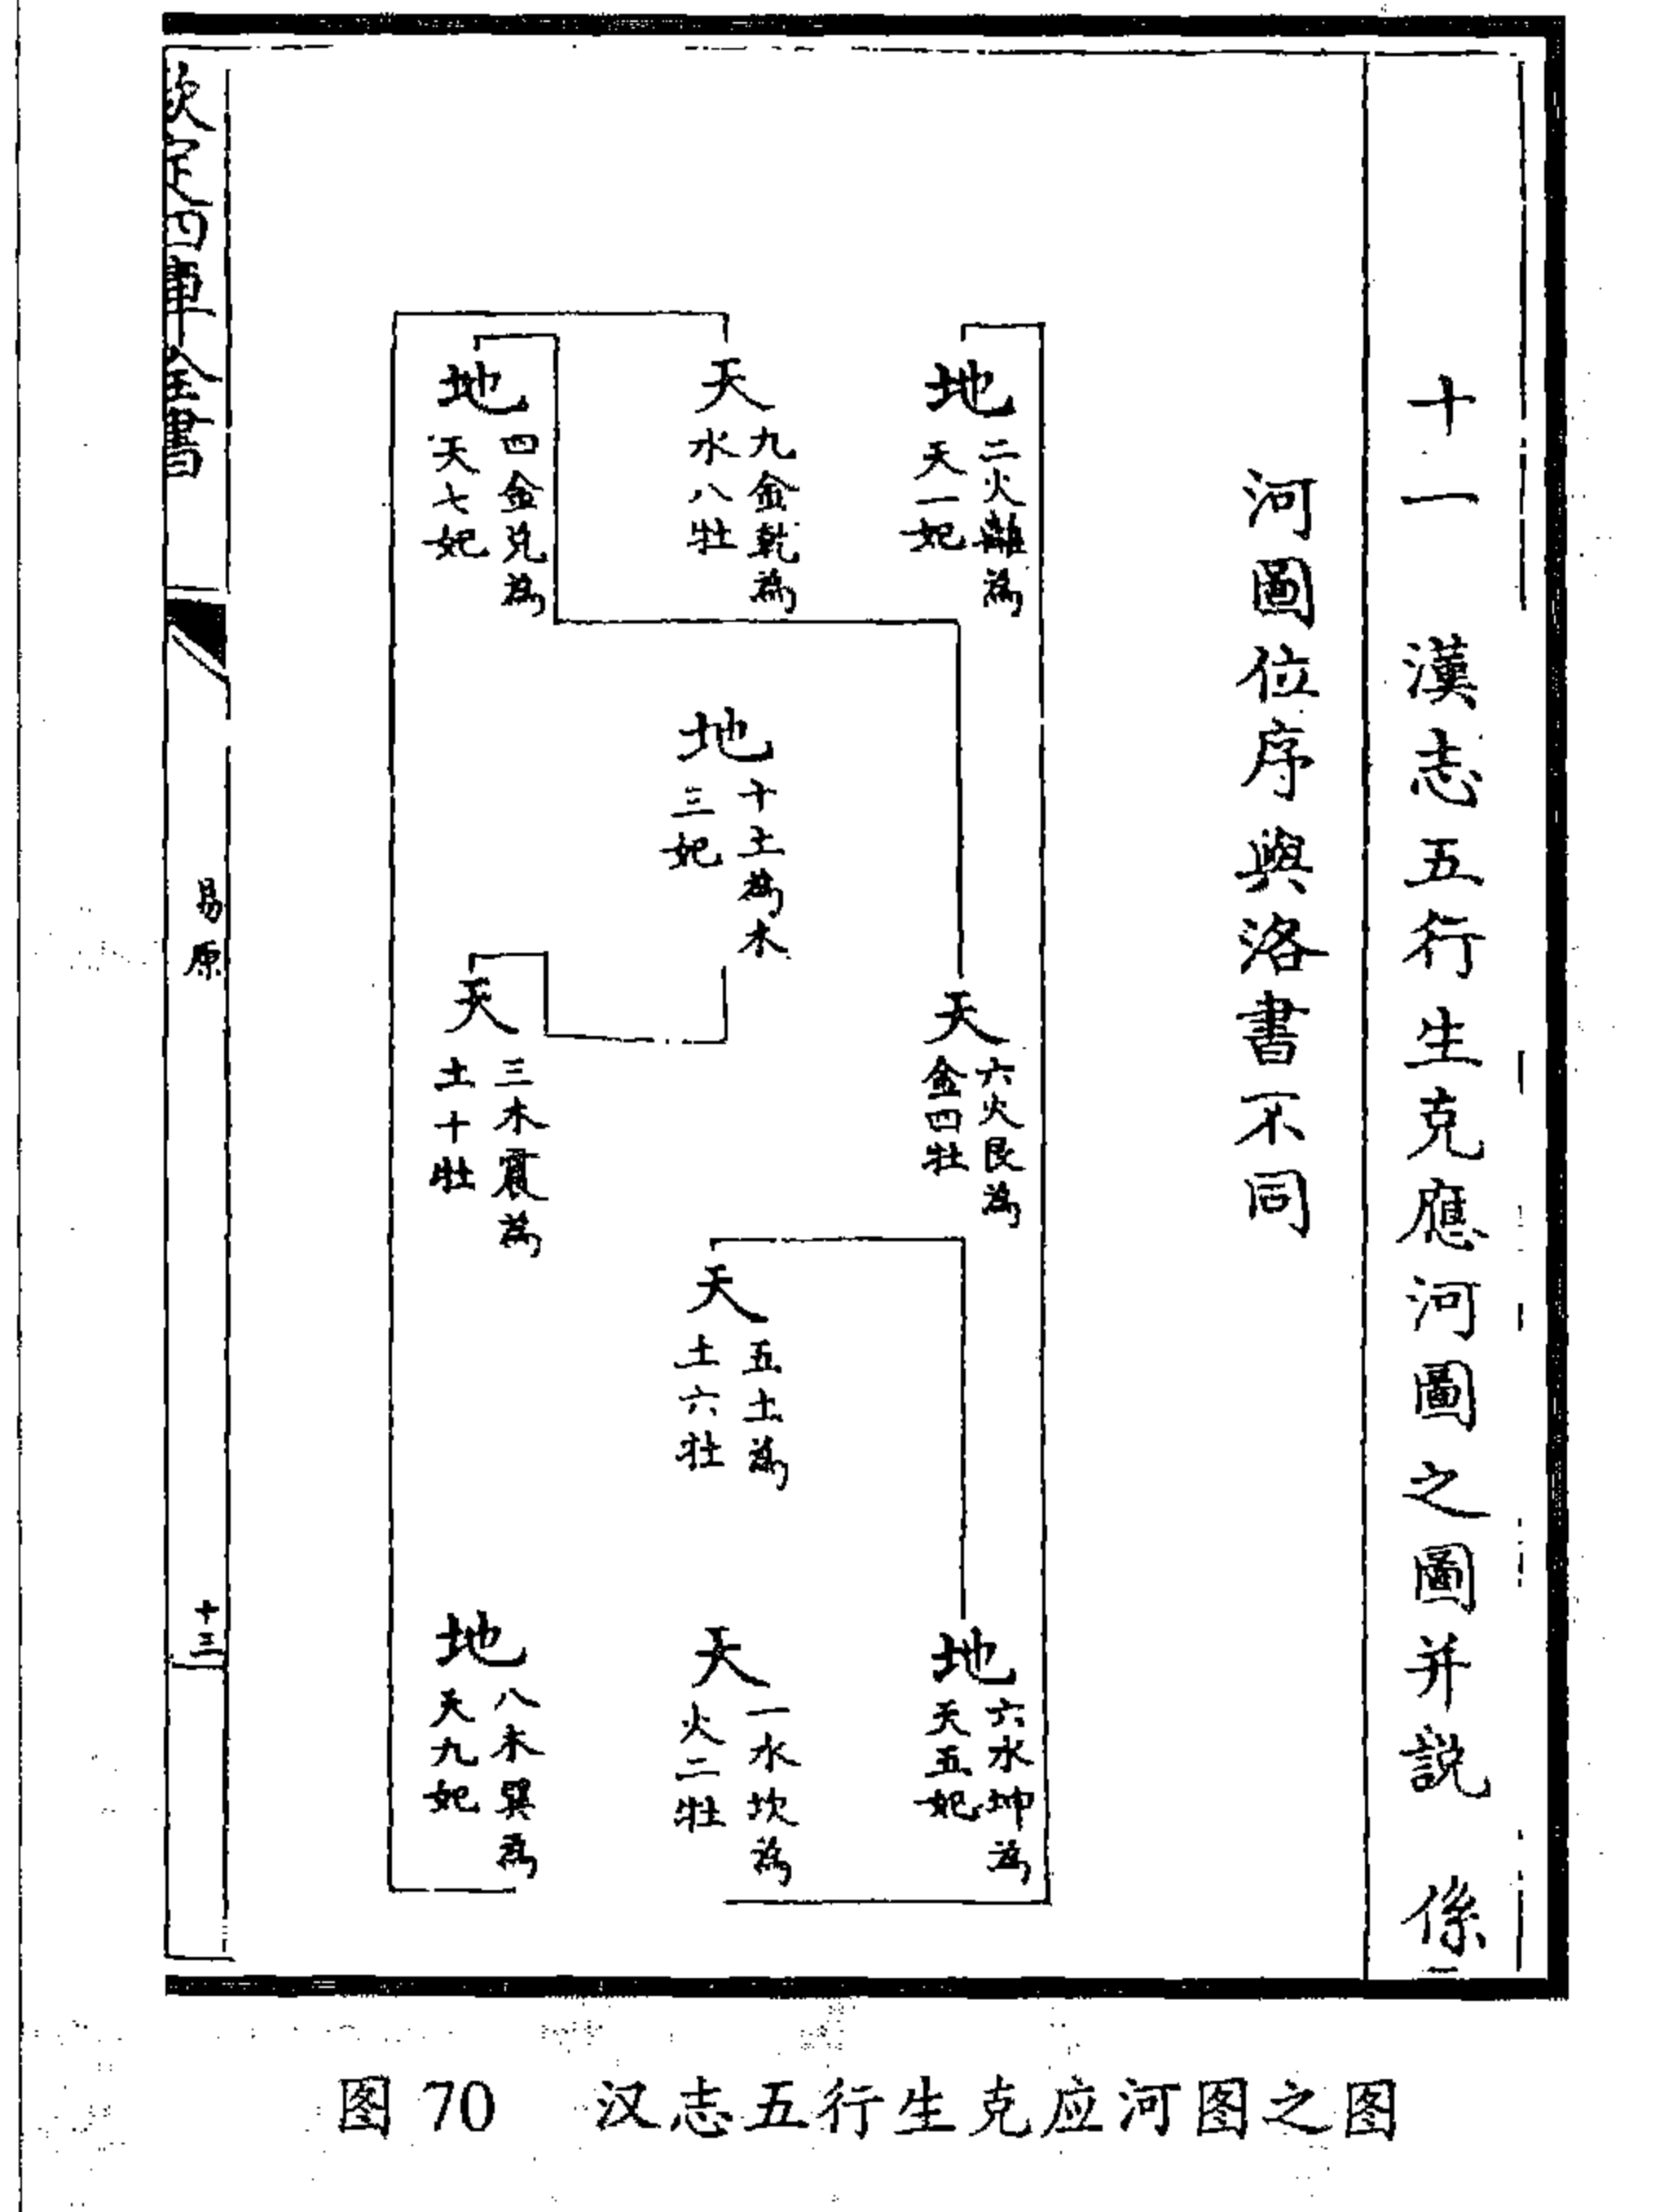 十一 漢志五行生克應河圖之圖并說 係
河圖位序與洛書不同
地 二火離為
天一妃
天 九金乾為
水八牡
地 四金兌為
天七妃
地 十土為木
三妃
天 六火艮為
金四牡
天 三木震為
土十牡
天 五土為
土六牡
地 六水坤為
天五妃
天 一水坎為
火二牡
地 八木巽為
天九妃
欽定四庫全書
易原
十三
图 70 汉志五行生克应河图之图